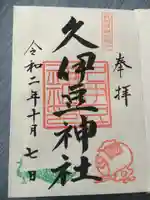 奉拝
久伊豆神社
令和二年十月七日